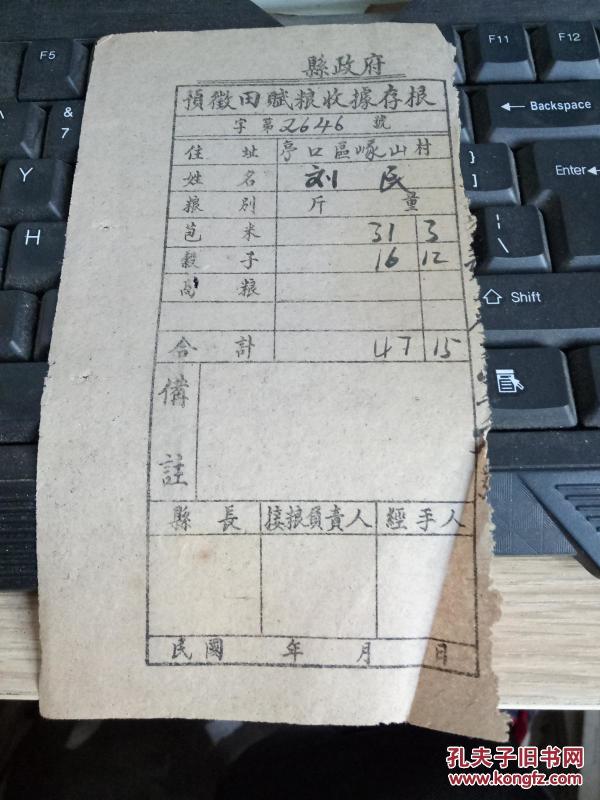 縣政府
預徵田賦粮收據存根
字第2646號
住址 亭口區嵏山村
姓名 刘民
粮别 斤量
苞米 31 3
穀子 16 12
高粮
合計 47 15
備註
縣長 接粮負責人 經手人
民國 年 月 日
F5
F11
F12
&
7
Y
H
}
]
|
\
← Backspace
Enter
Shift
孔夫子旧书网
www.kongfz.com